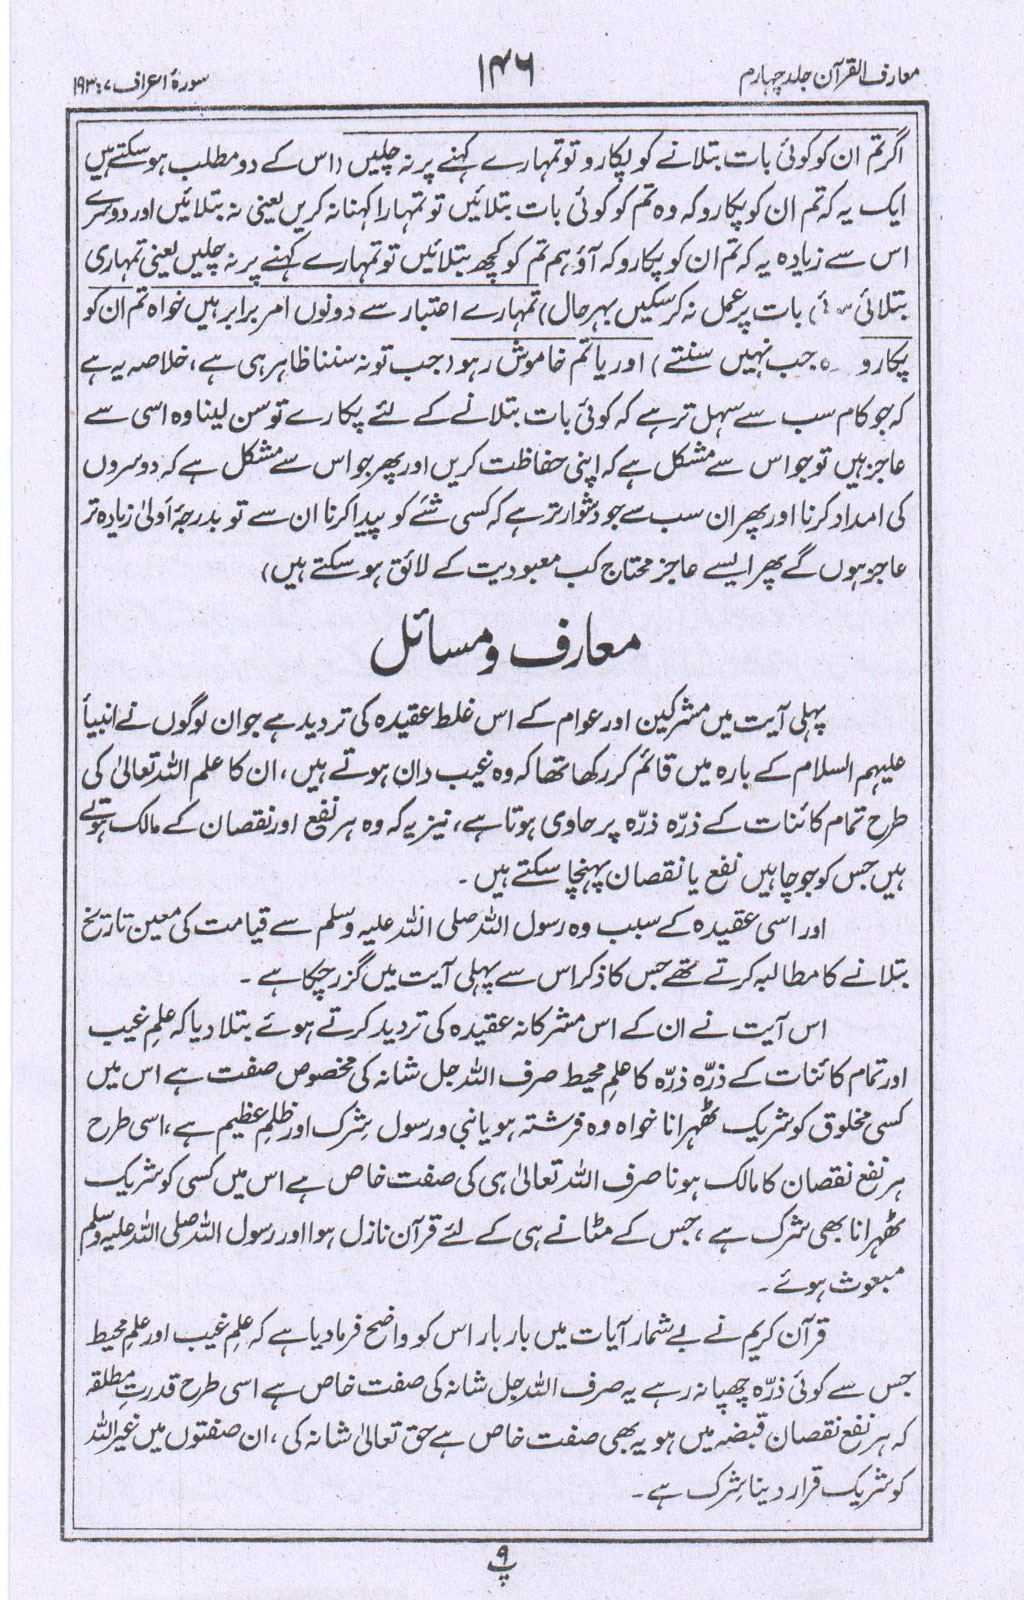 معارف القرآن جلد چہارم
۱۴۶
سورۂ اعراف ۷: ۱۹۳
اگر تم ان کو کوئی بات بتلانے کو پکارو تو تمہارے کہنے پر نہ چلیں (اس کے دو مطلب ہو سکتے ہیں
ایک یہ کہ تم ان کو پکارو کہ وہ تم کو کوئی بات بتلائیں تو تمہارا کہنا نہ کریں یعنی نہ بتلائیں اور دوسرے
اس سے زیادہ یہ کہ تم ان کو پکارو کہ آؤ ہم تم کو کچھ بتلائیں تو تمہارے کہنے پر نہ چلیں یعنی تمہاری
بتلائی بات پر عمل نہ کر سکیں بہر حال) تمہارے اعتبار سے دونوں امر برابر ہیں خواہ تم ان کو
پکارو جب نہیں سنتے) اور یا تم خاموش رہو (جب تو نہ سننا ظاہر ہی ہے، خلاصہ یہ ہے
کہ جو کام سب سے سہل تر ہے کہ کوئی بات بتلانے کے لئے پکارے تو سن لینا وہ اسی سے
عاجز ہیں تو جو اس سے مشکل ہے کہ اپنی حفاظت کریں اور پھر جو اس سے مشکل ہے کہ دوسروں
کی امداد کرنا اور پھر ان سب سے جو دشوار تر ہے کہ کسی شئے کو پیدا کرنا ان سے تو بدرجۂ اولیٰ زیادہ تر
عاجز ہوں گے پھر ایسے عاجز محتاج کب معبودیت کے لائق ہو سکتے ہیں)
معارف و مسائل
پہلی آیت میں مشرکین اور عوام کے اس غلط عقیدہ کی تردید ہے جو ان لوگوں نے انبیأ
علیہم السلام کے بارہ میں قائم کر رکھا تھا کہ وہ غیب دان ہوتے ہیں، ان کا علم اللہ تعالیٰ کی
طرح تمام کائنات کے ذرّہ ذرّہ پر حاوی ہوتا ہے، نیز یہ کہ وہ ہر نفع اور نقصان کے مالک ہوتے
ہیں جس کو جو چاہیں نفع یا نقصان پہنچا سکتے ہیں۔
اور اسی عقیدہ کے سبب وہ رسول اللہ صلی اللہ علیہ وسلم سے قیامت کی معین تاریخ
بتلانے کا مطالبہ کرتے تھے جس کا ذکر اس سے پہلی آیت میں گزر چکا ہے۔
اس آیت نے ان کے اس مشرکانہ عقیدہ کی تردید کرتے ہوئے بتلا دیا کہ علمِ غیب
اور تمام کائنات کے ذرّہ ذرّہ کا علمِ محیط صرف اللہ جل شانہ کی مخصوص صفت ہے اس میں
کسی مخلوق کو شریک ٹھہرانا خواہ وہ فرشتہ ہو یا نبی و رسول شِرک اور ظلمِ عظیم ہے، اسی طرح
ہر نفع نقصان کا مالک ہونا صرف اللہ تعالیٰ ہی کی صفت خاص ہے اس میں کسی کو شریک
ٹھہرانا بھی شرک ہے، جس کے مٹانے ہی کے لئے قرآن نازل ہوا اور رسول اللہ صلی اللہ علیہ وسلم
مبعوث ہوئے۔
قرآن کریم نے بے شمار آیات میں بار بار اس کو واضح فرما دیا ہے کہ علمِ غیب اور علمِ محیط
جس سے کوئی ذرّہ چھپا نہ رہے یہ صرف اللہ جل شانہ کی صفت خاص ہے اسی طرح قدرتِ مطلقہ
کہ ہر نفع نقصان قبضہ میں ہو یہ بھی صفت خاص ہے حق تعالیٰ شانہ کی، ان صفتوں میں غیر اللہ
کو شریک قرار دینا شِرک ہے۔
۹
پ